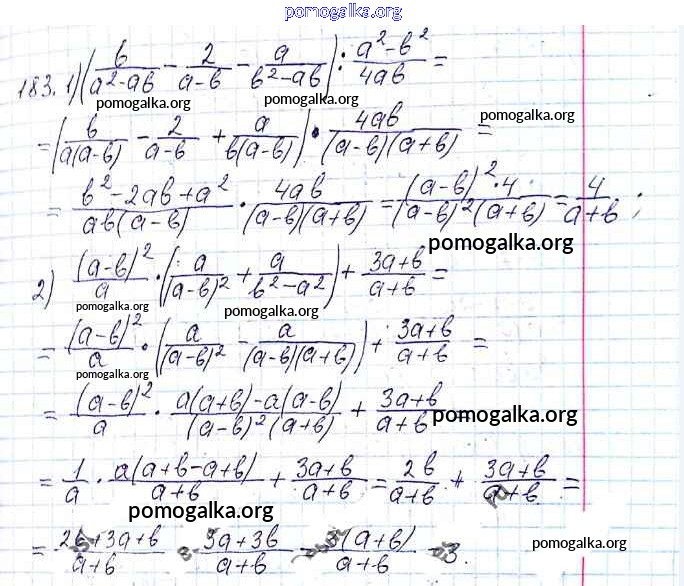 pomogalka.org
183. 1) (b/(a²-ab) - 2/(a-b) - a/(b²-ab)) : (a²-b²)/4ab =
pomogalka.org pomogalka.org pomogalka.org
= (b/(a(a-b)) - 2/(a-b) + a/(b(a-b))) • 4ab/((a-b)(a+b)) =
= (b²-2ab+a²)/(ab(a-b)) · 4ab/((a-b)(a+b)) = ((a-b)²·4)/((a-b)²(a+b)) = 4/(a+b) ;
pomogalka.org
2) (a-b)²/a · (a/(a-b)² + a/(b²-a²)) + (3a+b)/(a+b) =
pomogalka.org pomogalka.org
= (a-b)²/a · (a/(a-b)² - a/((a-b)(a+b))) + (3a+b)/(a+b) =
pomogalka.org
= (a-b)²/a · (a(a+b)-a(a-b))/((a-b)²(a+b)) + (3a+b)/(a+b) =
pomogalka.org
= 1/a · a(a+b-a+b)/(a+b) + (3a+b)/(a+b) = 2b/(a+b) + (3a+b)/(a+b) =
pomogalka.org
= (2b+3a+b)/(a+b) = (3a+3b)/(a+b) = 3(a+b)/(a+b) = 3.
pomogalka.org